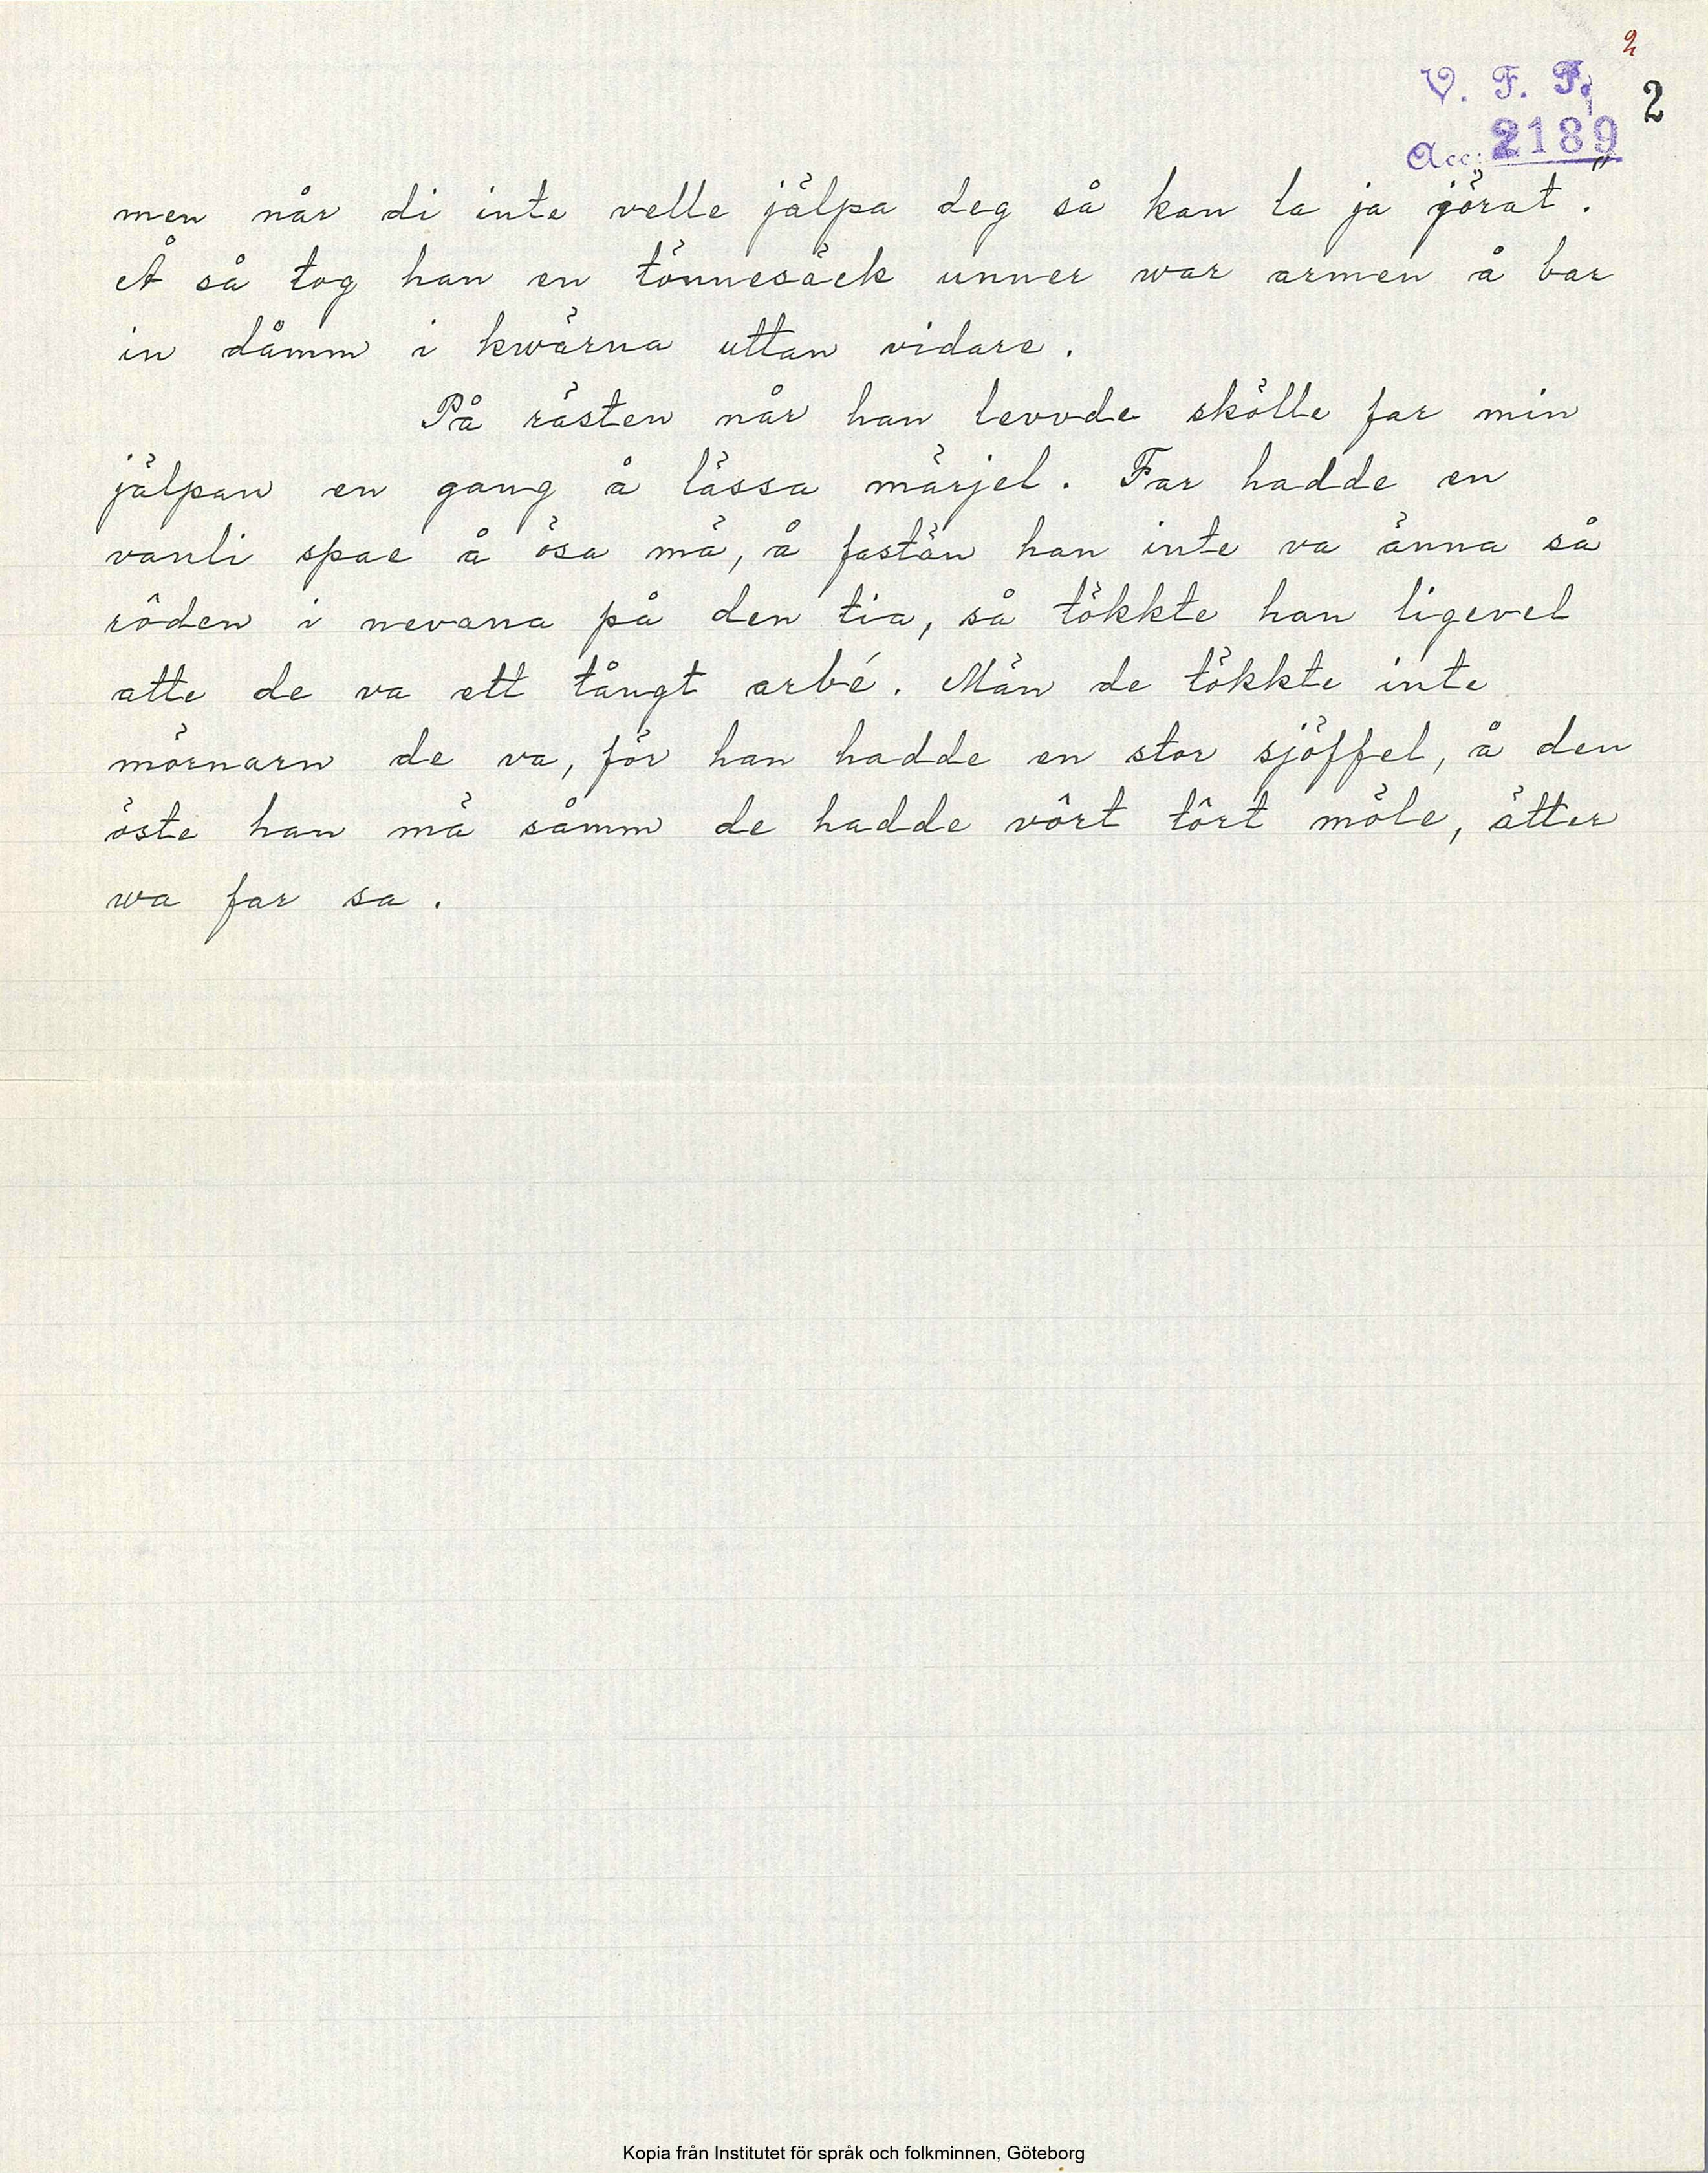 2
V. F. F. 2
Acc: 2189
men når di inte velle jälpa deg så kan la ja jörat."
Å så tog han en tönnesäck unner war armen å bar
in dåmm i kwärna uttan vidare.
På rästen når han levvde skölle far min
jälpan en gang å lässa märjel. Far hadde en
vanli spae å ösa mä, å fastän han inte va änna så
rôden i nevana på den tia, så tökkte han ligevel
atte de va ett tångt arbé. Män de tökkte inte
mörnarn de va, för han hadde en stor sjöffel, å den
öste han mä såmm de hadde vôrt tôrt möle, ätter
wa far sa.
Kopia från Institutet för språk och folkminnen, Göteborg